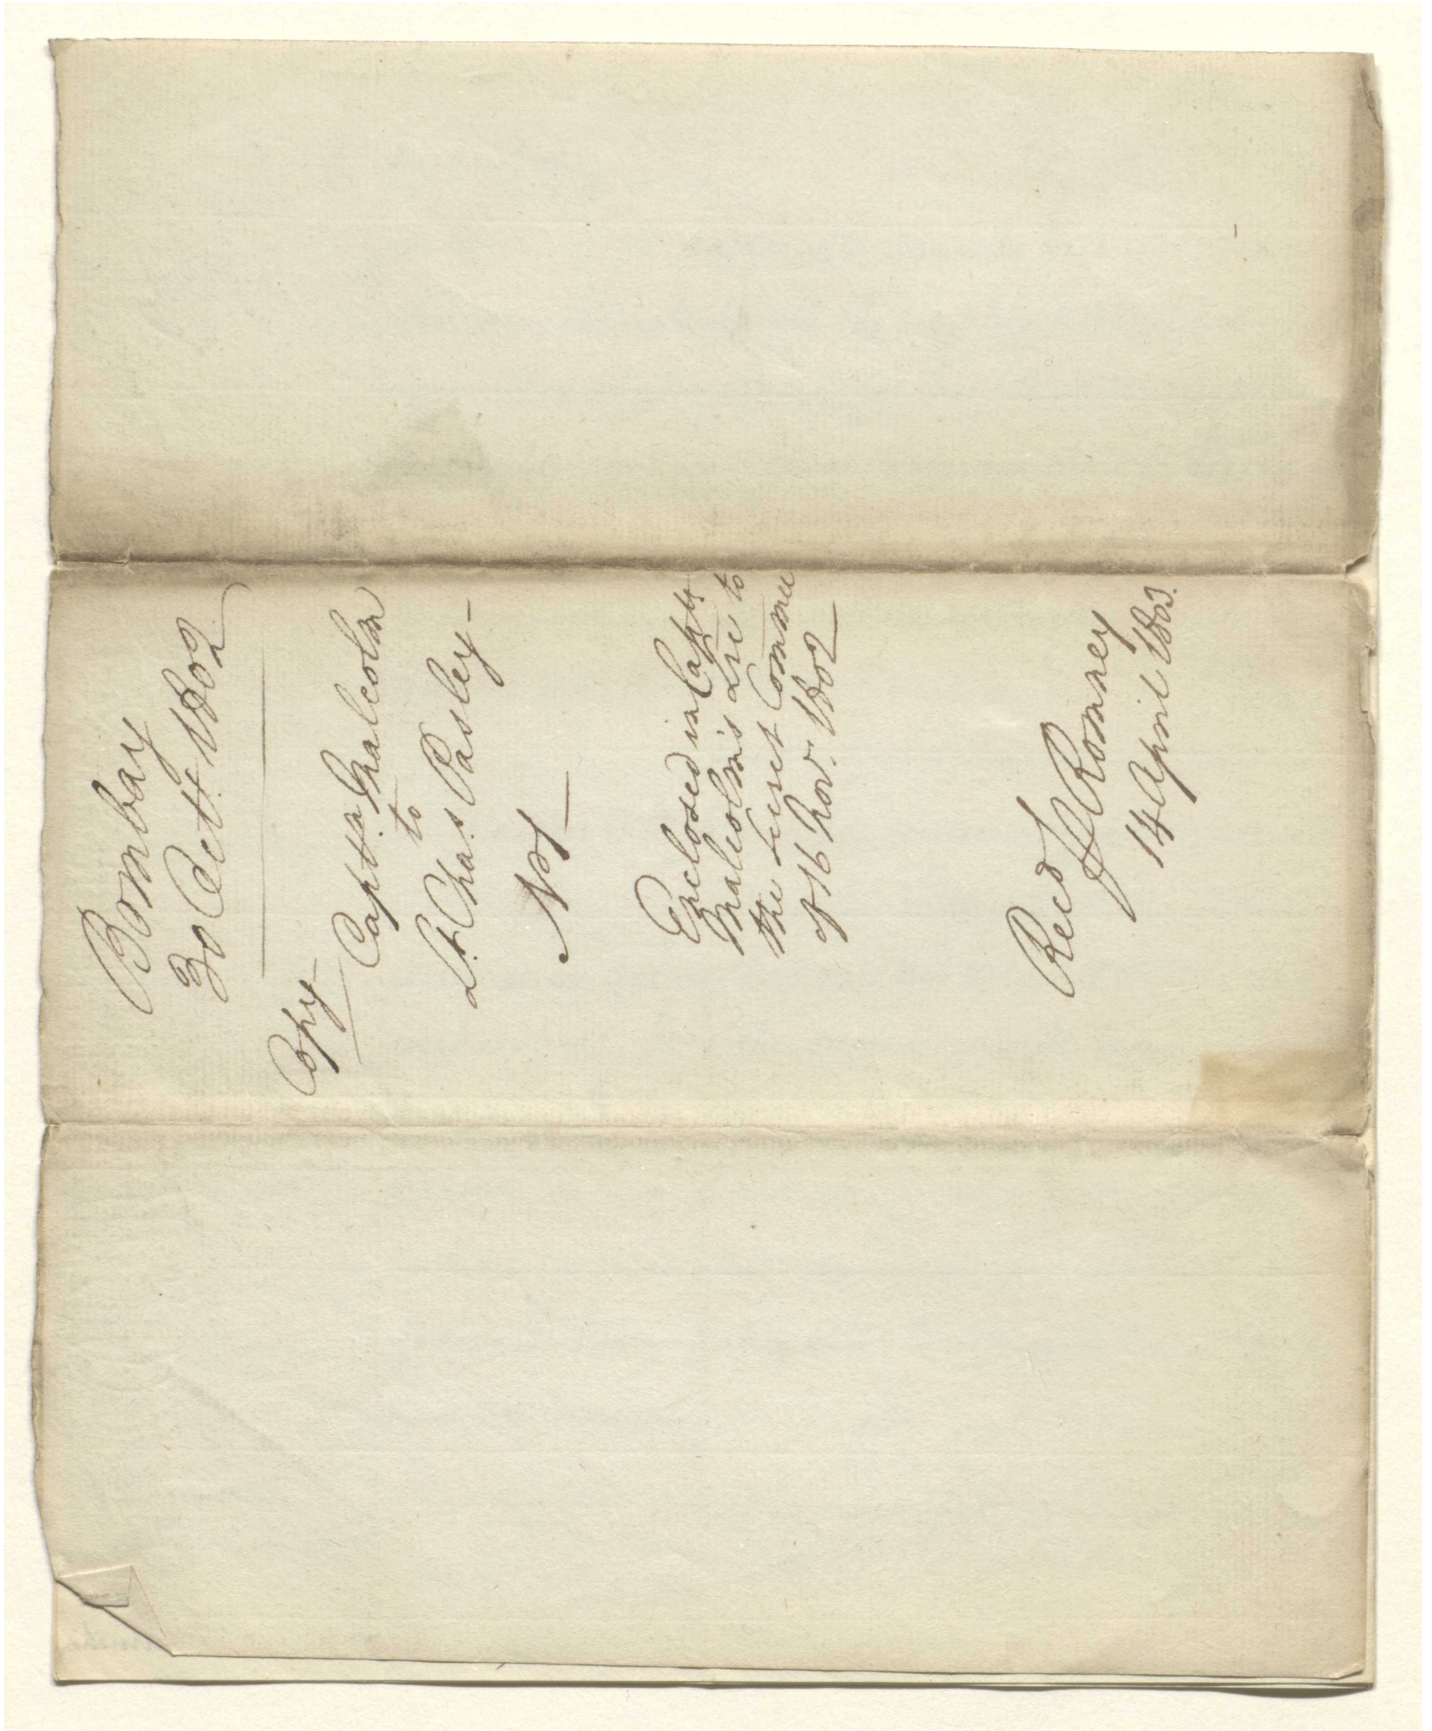 Bombay
30 Octr. 1802
Copy
Captn. Malcolm
to
Lt. Chas. Pasley
No 1
Enclosed in Captn
Malcolm's Lre to
the Secret Commee
of 16 Nov. 1802
Recd
Romney
14 April 1803.